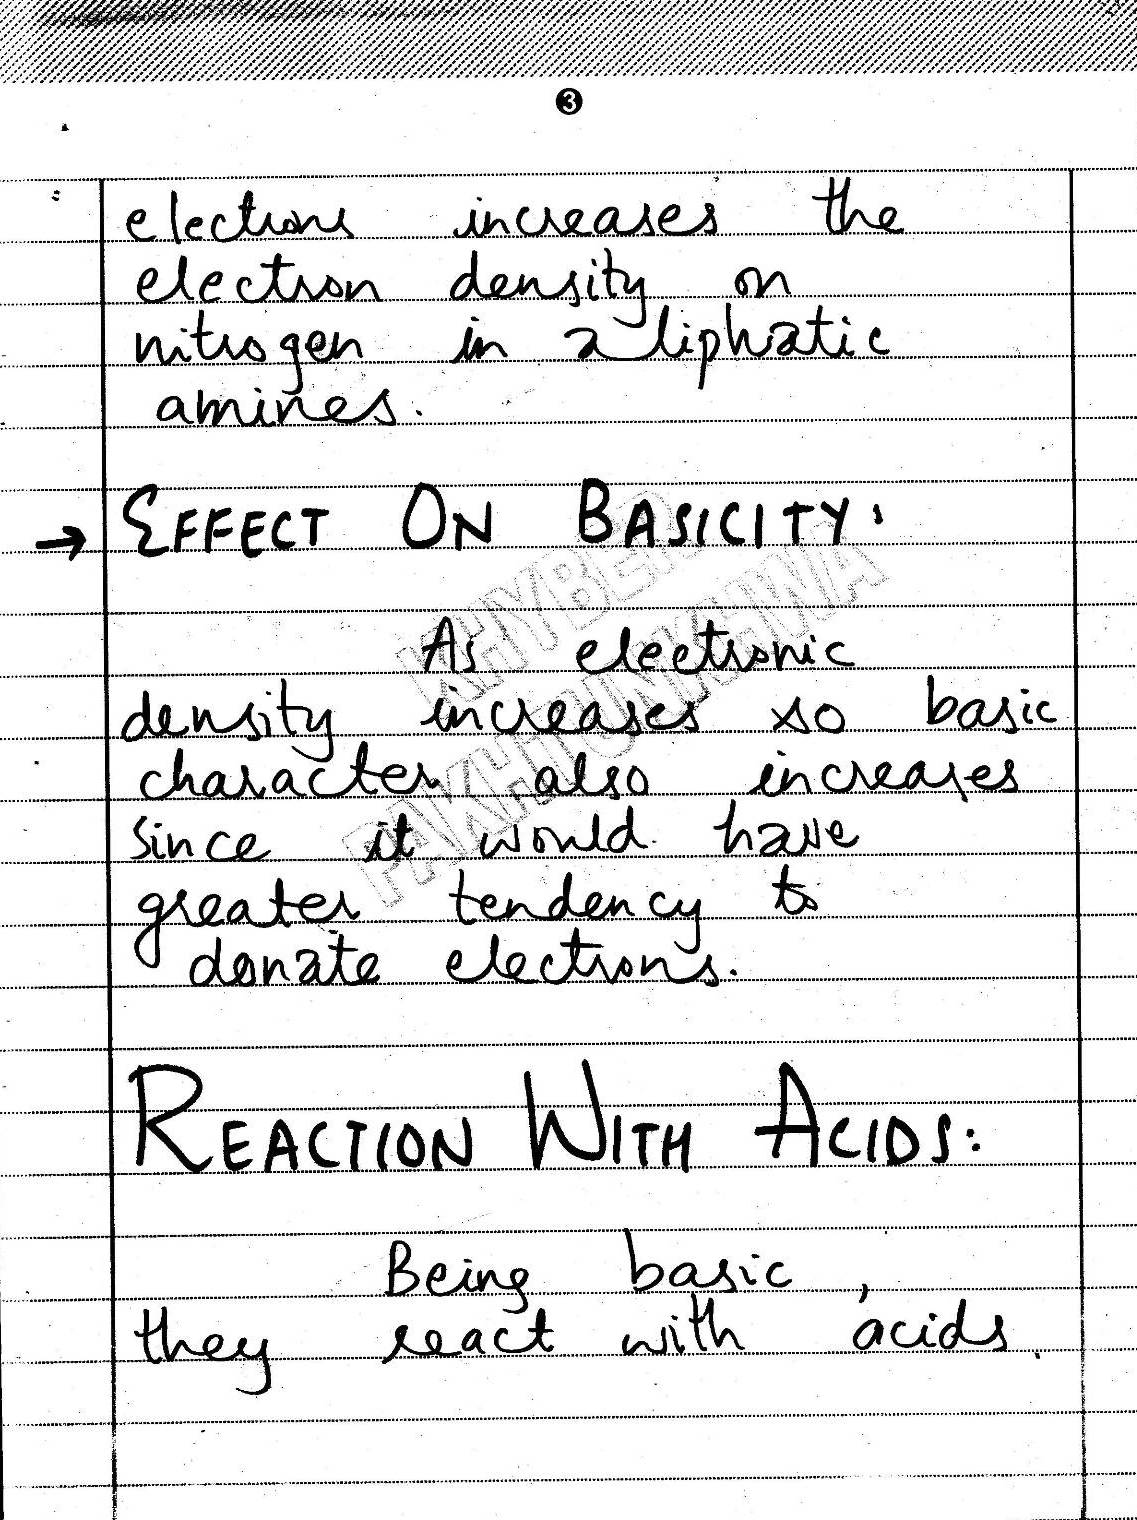 3
elections increases the
electron density on
nitrogen in aliphatic
amines.
→ EFFECT ON BASICITY:
KHYBER
PAKHTUNKHWA
As electronic
density increases so basic
character also increases
since it would have
greater tendency to
donate electrons.
REACTION WITH ACIDS:
Being basic,
they react with acids.